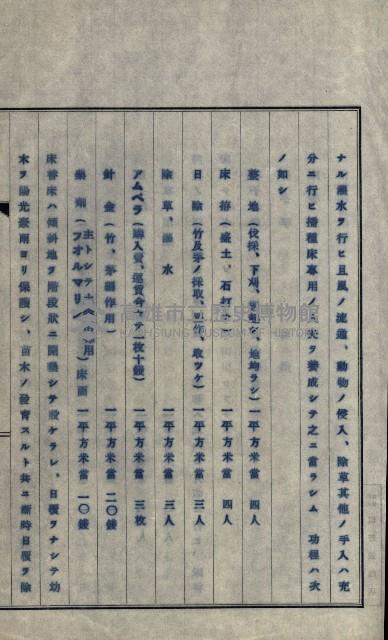 ナル灌水ヲ行ヒ且風ノ流通、動物ノ侵入、除草其他ノ手入ハ充
分ニ行ヒ播種床專用ノ人夫ヲ養成シテ之ニ當ラシム 功程ハ次
ノ如シ
整地(伐採、下刈、地均ラシ)一平方米當 四人
床拵(盛土、石 一平方米當 四人
日除(竹及茅ノ採取、取ツケ)一平方米當 三人
除草、灌水 一平方米當 三人
アムペラ(購入費、運賃含ム 一枚十錢)一平方米當 三枚
針金(竹、茅 作用)一平方米當 二〇錢
藥劑(主トシテ 用 フオルマリン)床面 一平方米當 一〇錢
床替床ハ傾斜地ヲ階段狀ニ開墾シテ設ケラレ、日覆ヲナシテ幼
木ヲ陽光豪雨ヨリ保護シ、苗木ノ發育スルト共ニ漸時日覆ヲ除
高雄市立歷史博物館
KAOHSIUNG MUSEUM OF HISTORY